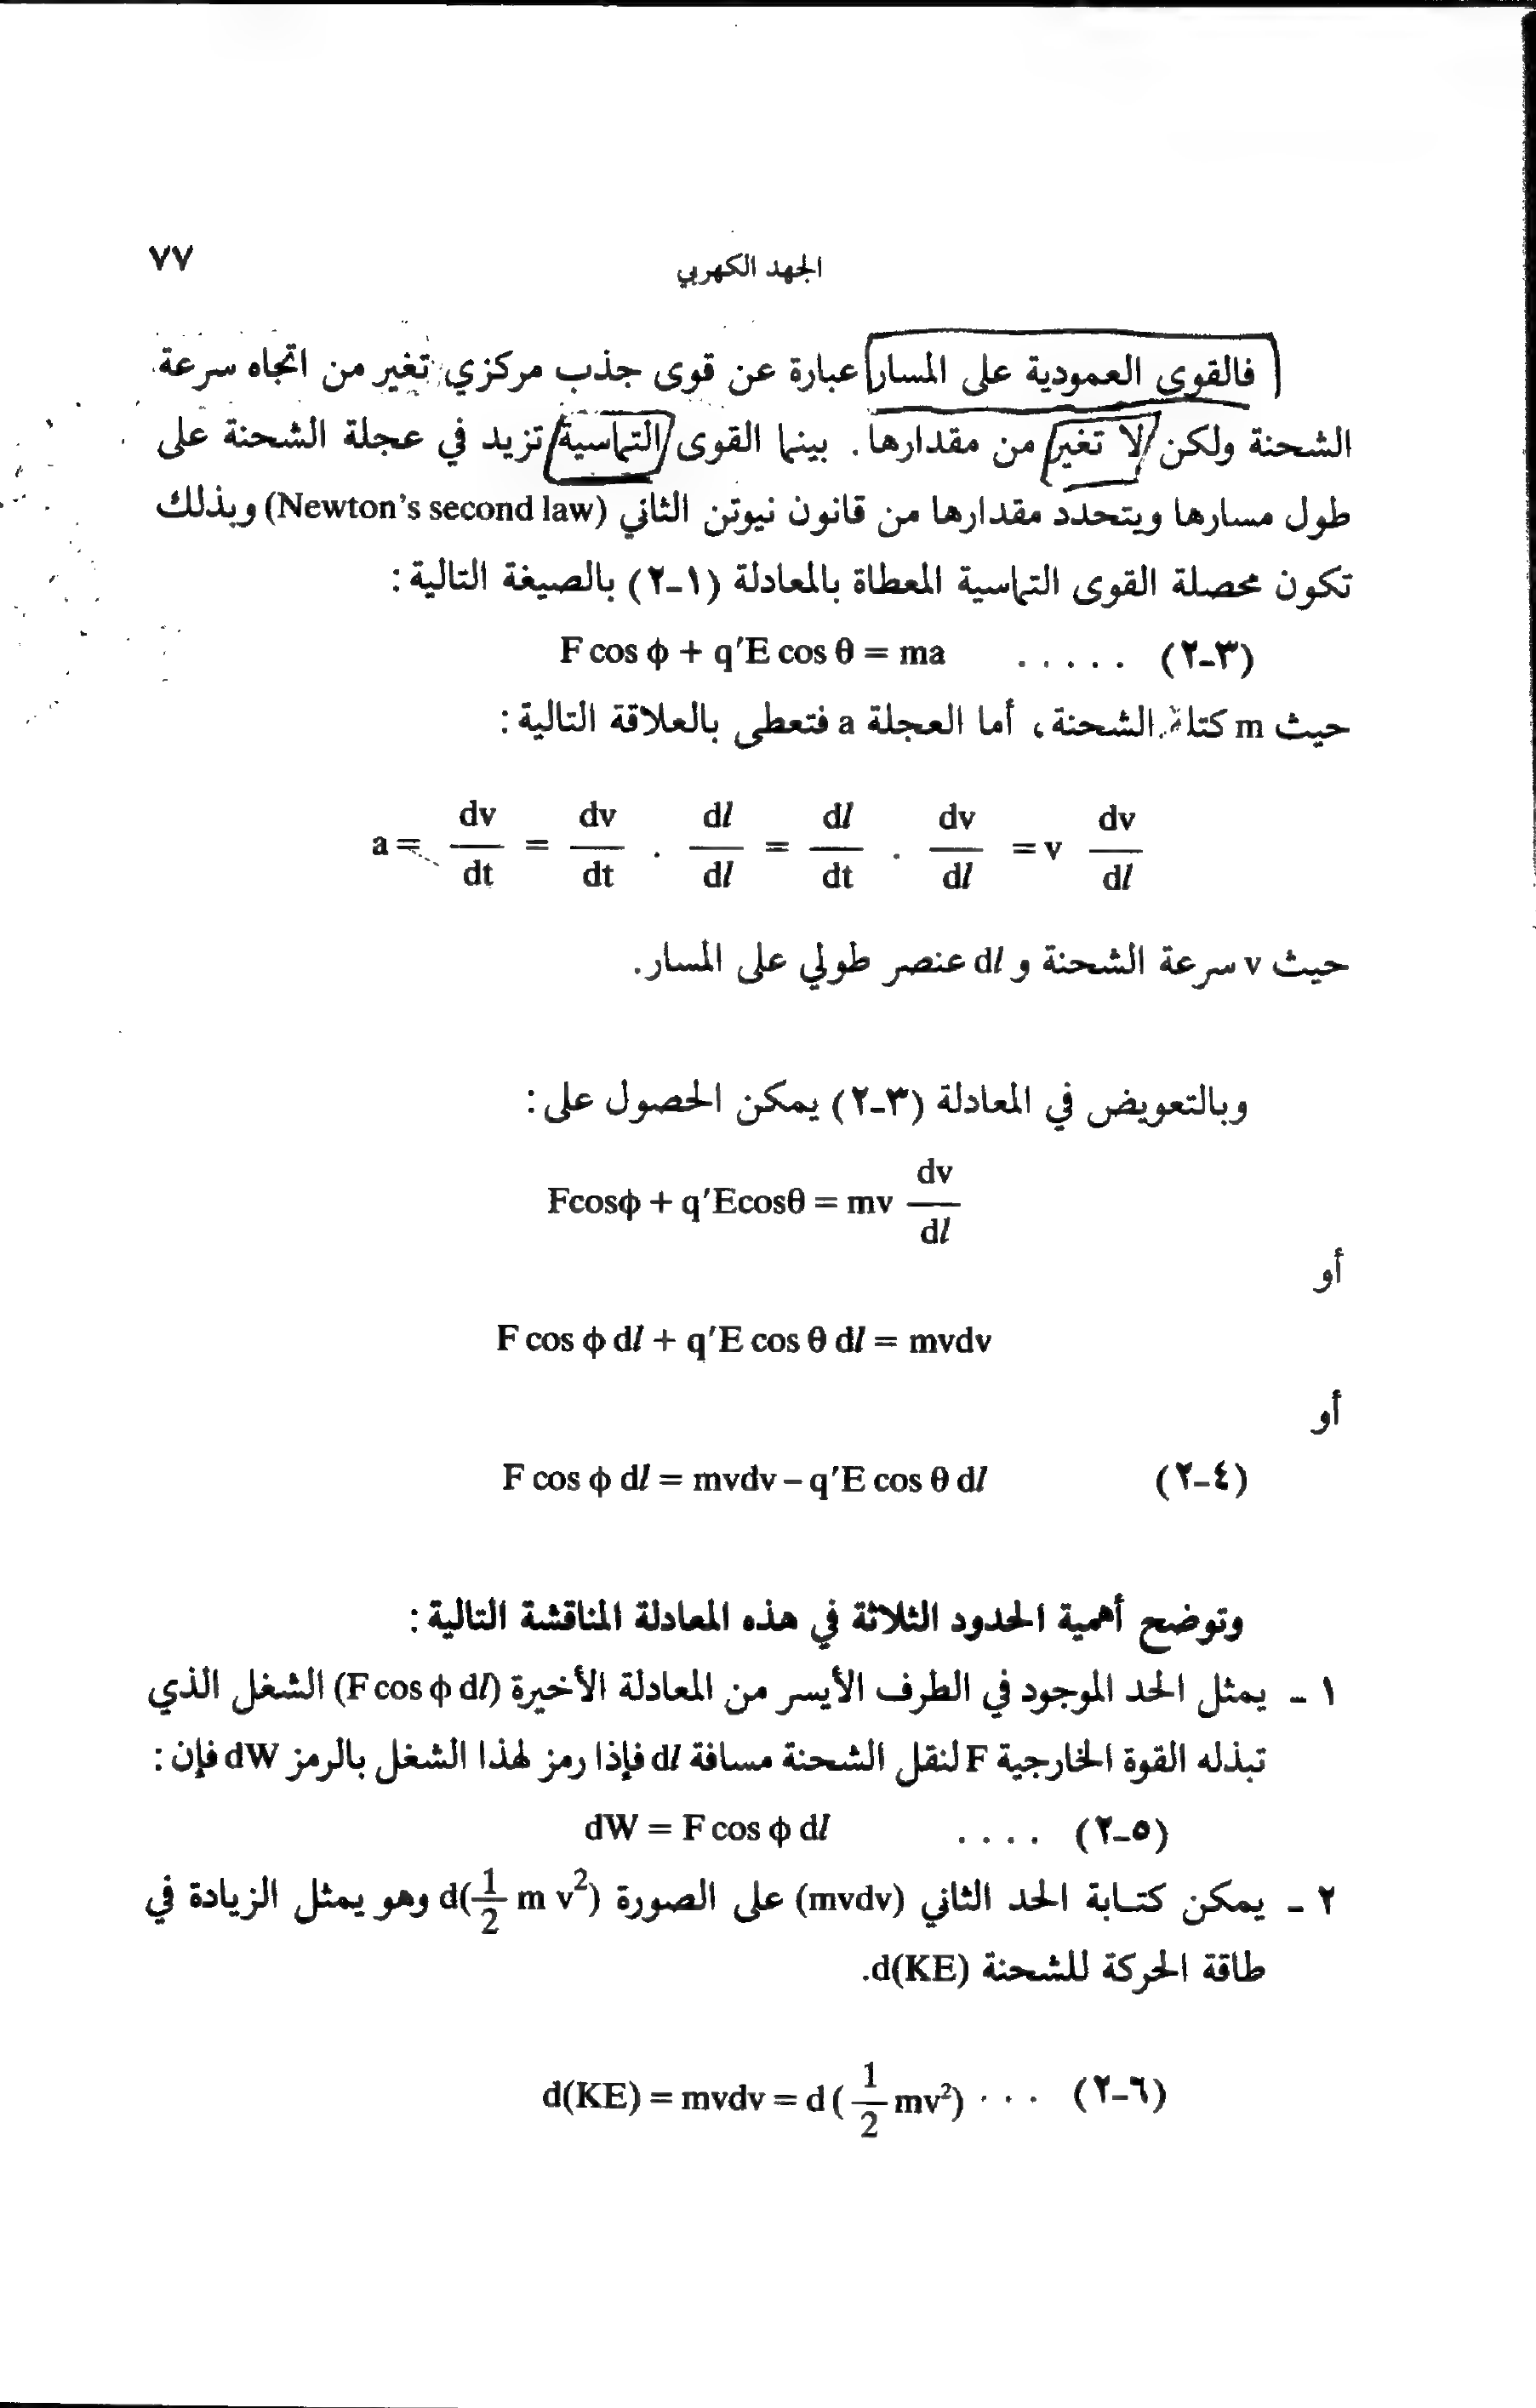 الجهد الكهربي ٧٧
فالقوى العمودية على المسار عبارة عن قوى جذب مركزي تغير من اتجاه سرعة
الشحنة ولكن لا تغير من مقدارها. بينما القوى التماسية تزيد في عجلة الشحنة على
طول مسارها ويتحدد مقدارها من قانون نيوتن الثاني (Newton's second law) وبذلك
تكون محصلة القوى التماسية المعطاة بالمعادلة (٢-١) بالصيغة التالية:
F cos ϕ + q′E cos θ = ma ..... (٢-٣)
حيث m كتلة الشحنة، أما العجلة a فتعطى بالعلاقة التالية:
a = dv/dt = dv/dt . dl/dl = dl/dt . dv/dl = v dv/dl
حيث v سرعة الشحنة و dl عنصر طولي على المسار.
وبالتعويض في المعادلة (٢-٣) يمكن الحصول على:
Fcosϕ + q′Ecosθ = mv dv/dl
أو
F cos ϕ dl + q′E cos θ dl = mvdv
أو
F cos ϕ dl = mvdv – q′E cos θ dl (٢-٤)
وتوضح أهمية الحدود الثلاثة في هذه المعادلة المناقشة التالية:
١ - يمثل الحد الموجود في الطرف الأيسر من المعادلة الأخيرة (F cos ϕ dl) الشغل الذي
تبذله القوة الخارجية F لنقل الشحنة مسافة dl فإذا رمز لهذا الشغل بالرمز dW فإن:
dW = F cos ϕ dl .... (٢-٥)
٢ - يمكن كتابة الحد الثاني (mvdv) على الصورة d(1/2 m v²) وهو يمثل الزيادة في
طاقة الحركة للشحنة d(KE).
d(KE) = mvdv = d (1/2 mv²) ... (٢-٦)